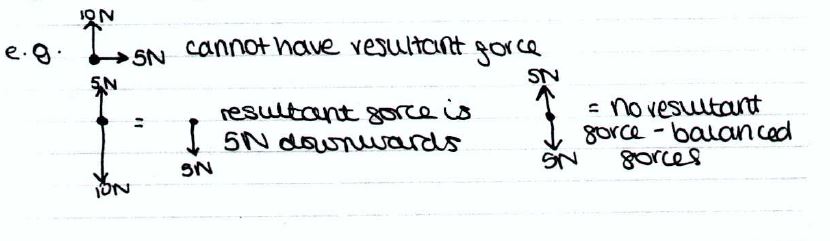 10N
e.g. 5N cannot have resultant force
5N
= resultant force is
5N downwards
5N
10N
5N
= no resultant
force - balanced
forces
5N